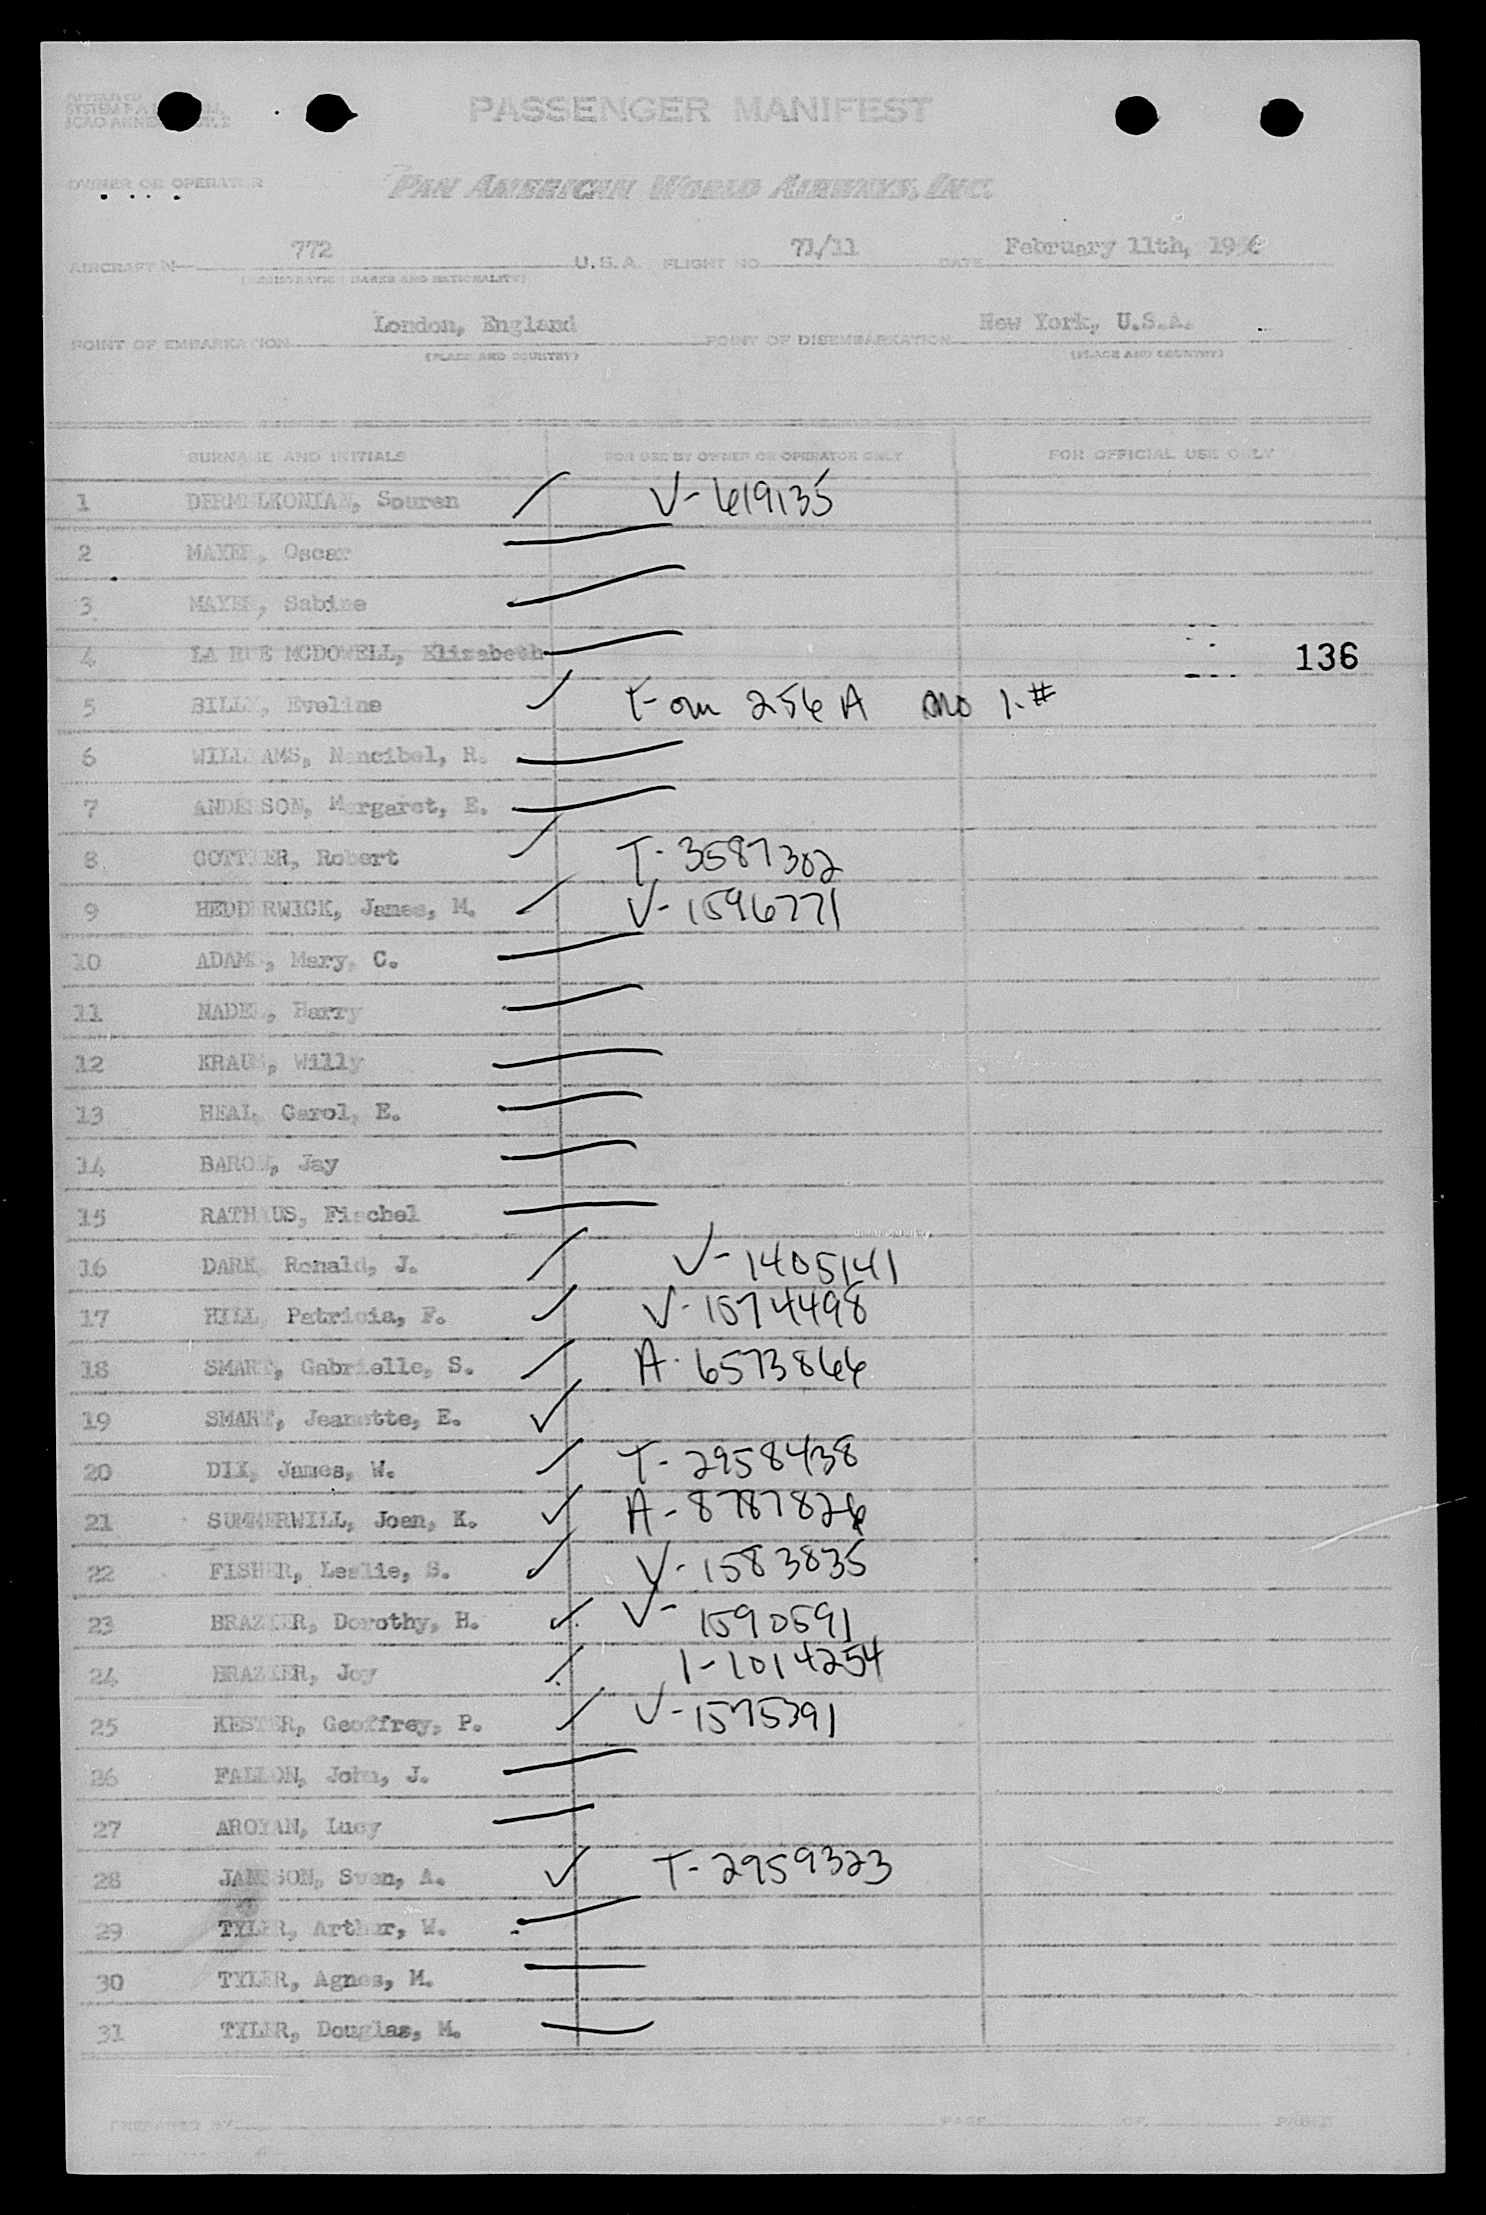 PASSENGER MANIFEST
OWNER OR OPERATOR
PAN AMERICAN WORLD AIRWAYS, INC.
AIRCRAFT N— 772 U.S.A. FLIGHT NO 71/11 DATE February 11th, 1956
(REGISTRATION MARKS AND NATIONALITY)
POINT OF EMBARKATION London, England POINT OF DISEMBARKATION New York, U.S.A.
(PLACE AND COUNTRY) (PLACE AND COUNTRY)
SURNAME AND INITIALS FOR USE BY OWNER OR OPERATOR ONLY FOR OFFICIAL USE ONLY
1 DERMELKONIAN, Souren V-619135
2 MAYER, Oscar
3 MAYER, Sabine
4 LA RUE MCDOWELL, Elizabeth 136
5 Eveline T- 256 A no 1.#
6 WILLIAMS, Nancibel, H.
7 ANDERSON, Margaret, E.
8 Robert T-3587302
9 HEDDERWICK, James, M. V-1596771
10 ADAMS, Mary, C.
11 NADEL, Harry
12 Willy
13 HEAL, Carol, E.
14 BARON, Jay
15 RATHAUS, Fischel
16 DARK, Ronald, J. V-1405141
17 HILL, Patricia, F. V-1574498
18 SMART, Gabrielle, S. A-6573866
19 SMART, Jeanette, E.
20 DIX, James, W. T-2958438
21 SUMMERWILL, Joan, K. A-8787826
22 FISHER, Leslie, S. V-1583835
23 BRAZIER, Dorothy, H. V-1590591
24 BRAZIER, Joy 1-1014254
25 KESTER, Geoffrey, P. V-1575391
26 FALLON, John, J.
27 AROYAN, Lucy
28 Sven, A. T-2959323
29 TYLER, Arthur, W.
30 TYLER, Agnes, M.
31 TYLER, Douglas, M.
PREPARED BY PAGE OF PAGES